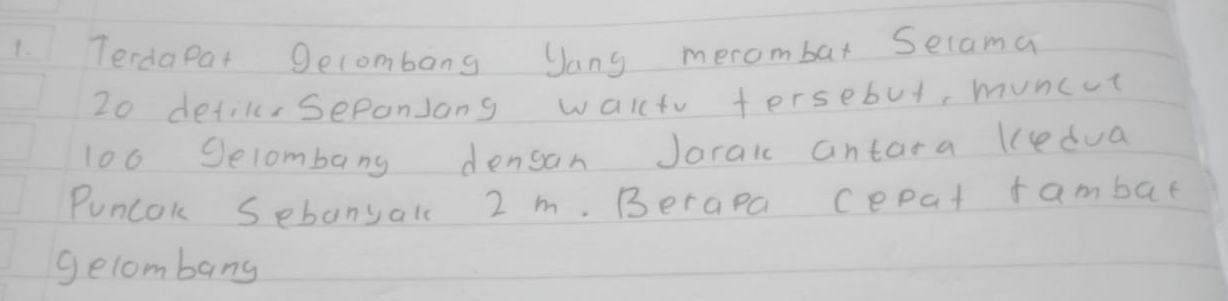 1. Terdapat gelombang yang merambat selama
20 detik. Sepanjang waktu tersebut, muncul
100 gelombang dengan Jarak antara kedua
Puncak sebanyak 2 m. Berapa cepat rambat
gelombang